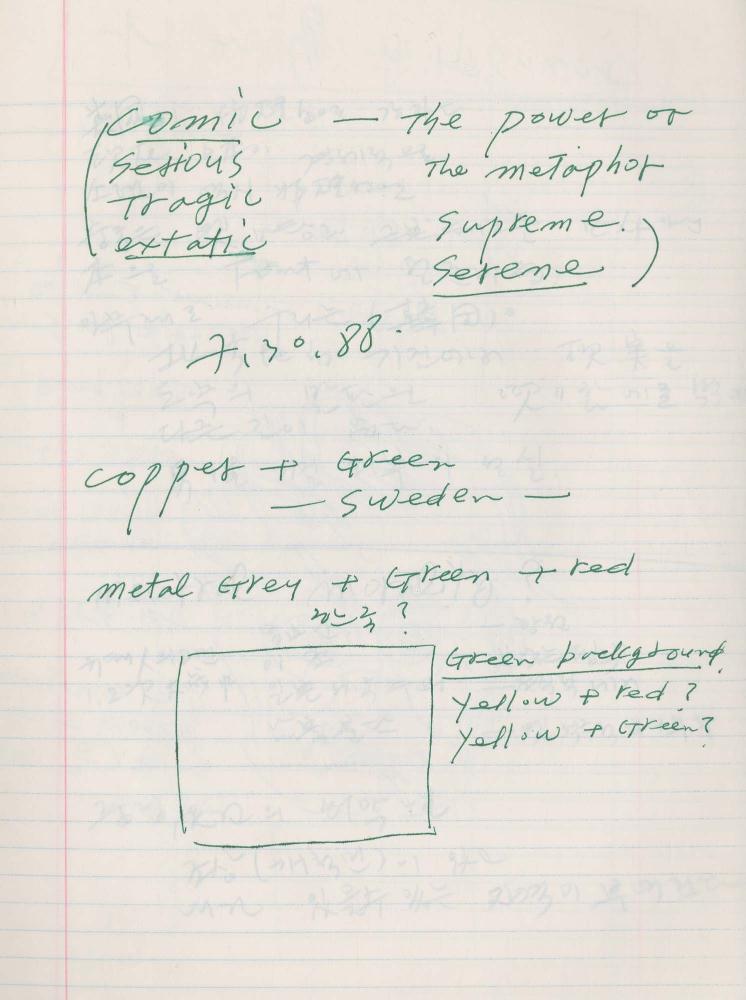 (comic — The power or
serious The metaphor
Tragic supreme.
extatic serene)
7,30,88.
copper + Green
— Sweden —
metal Grey + Green + red
?
Green background
Yellow + red?
Yellow + Green?